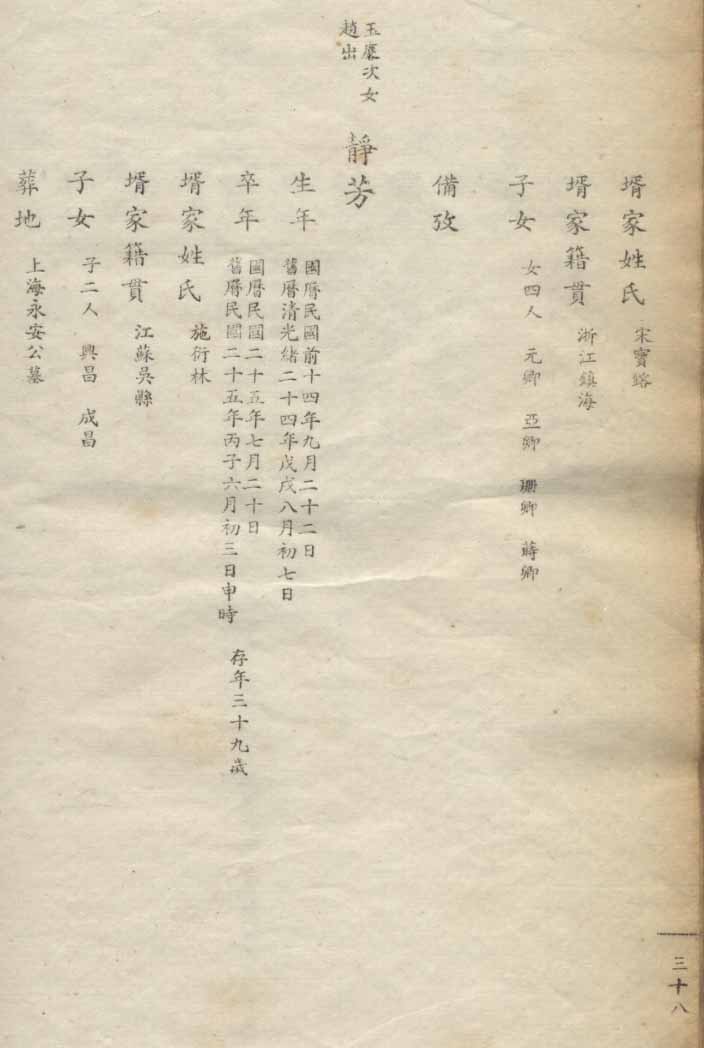 壻家姓氏 宋寶鎔
壻家籍貫 浙江鎮海
子女 女四人 元卿 亞卿 珊卿 蒔卿
備攷
玉麐次女
趙出
靜芳
生年
國曆民國前十四年九月二十二日
舊曆清光緒二十四年戊戌八月初七日
卒年
國曆民國二十五年七月二十日
舊曆民國二十五年丙子六月初三日申時 存年三十九歲
壻家姓氏 施衍林
壻家籍貫 江蘇吳縣
子女 子二人 興昌 成昌
葬地 上海永安公墓
三十八